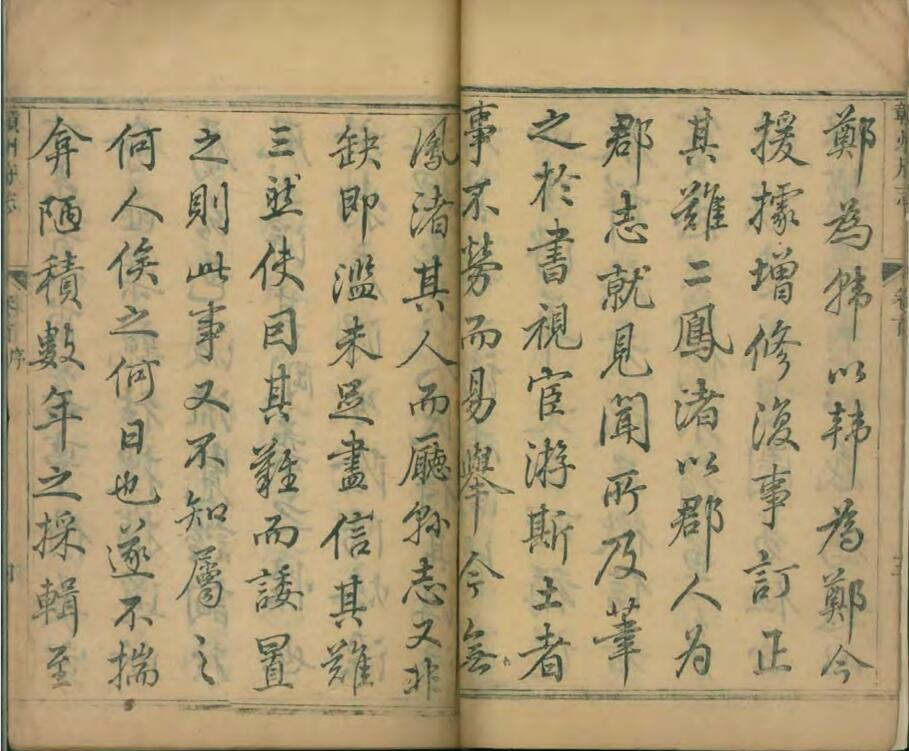 鄭為韓以韓為鄭今
援據增修復事訂正
其難二鳳渚以郡人為
郡志就見聞所及筆
之於書視宦游斯土者
事不勞而易舉今無
鳳渚其人而廳縣志又非
缺即濫未足盡信其難
三然使因其難而諉置
之則此事又不知屬之
何人俟之何日也遂不揣
弇陋積數年之採輯至
州府志
序